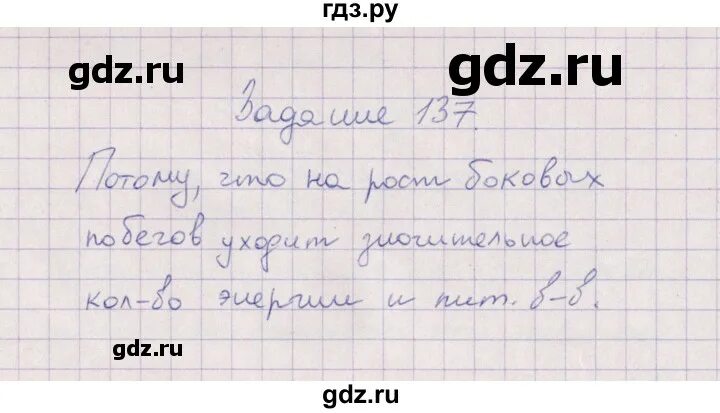 гдз.ру
gdz.ru
gdz.ru
Задание 137.
Потому, что на рост боковых
побегов уходит значительное
кол-во энергии и пит. в-в.
gdz.ru
gdz.ru